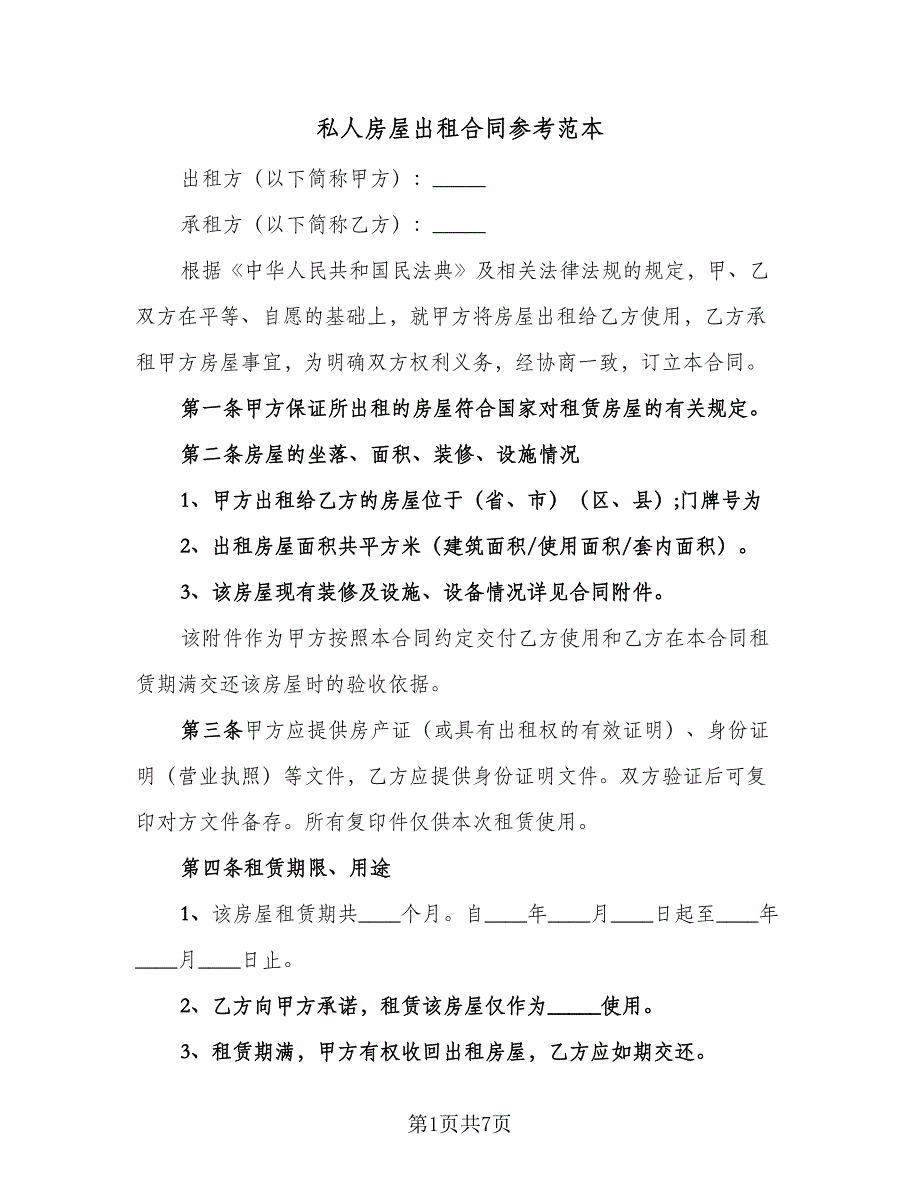 私人房屋出租合同参考范本
出租方（以下简称甲方）：_____
承租方（以下简称乙方）：_____
根据《中华人民共和国民法典》及相关法律法规的规定，甲、乙
双方在平等、自愿的基础上，就甲方将房屋出租给乙方使用，乙方承
租甲方房屋事宜，为明确双方权利义务，经协商一致，订立本合同。
第一条甲方保证所出租的房屋符合国家对租赁房屋的有关规定。
第二条房屋的坐落、面积、装修、设施情况
1、甲方出租给乙方的房屋位于（省、市）（区、县）;门牌号为
2、出租房屋面积共平方米（建筑面积/使用面积/套内面积）。
3、该房屋现有装修及设施、设备情况详见合同附件。
该附件作为甲方按照本合同约定交付乙方使用和乙方在本合同租
赁期满交还该房屋时的验收依据。
第三条甲方应提供房产证（或具有出租权的有效证明）、身份证
明（营业执照）等文件，乙方应提供身份证明文件。双方验证后可复
印对方文件备存。所有复印件仅供本次租赁使用。
第四条租赁期限、用途
1、该房屋租赁期共____个月。自____年____月____日起至____年
____月____日止。
2、乙方向甲方承诺，租赁该房屋仅作为_____使用。
3、租赁期满，甲方有权收回出租房屋，乙方应如期交还。
第1页共7页